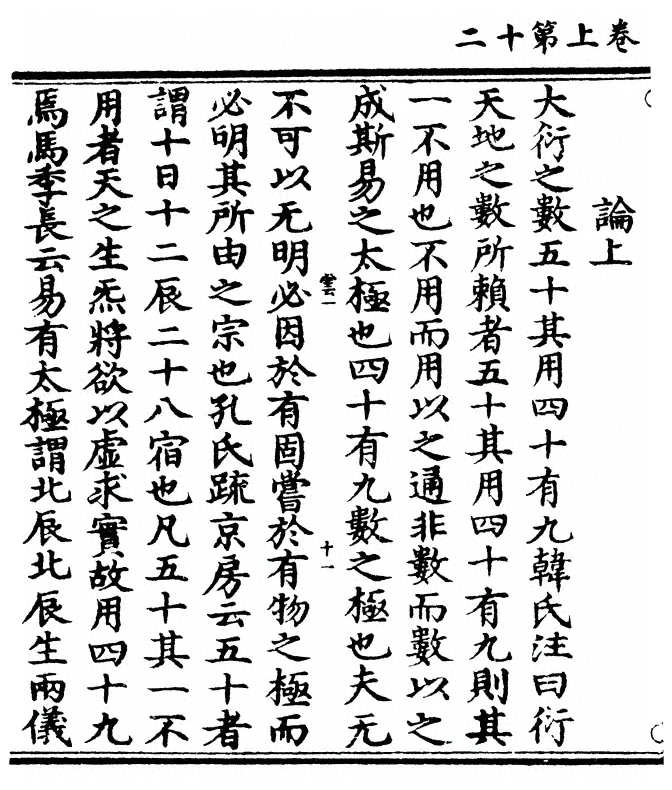 卷上第十二
論上
大衍之數五十其用四十有九韓氏注曰衍
天地之數所賴者五十其用四十有九則其
一不用也不用而用以之通非數而數以之
成斯易之太極也四十有九數之極也夫无
雲一
十一
不可以无明必因於有固嘗於有物之極而
必明其所由之宗也孔氏疏京房云五十者
謂十日十二辰二十八宿也凡五十其一不
用者天之生炁將欲以虛求實故用四十九
焉馬季長云易有太極謂北辰北辰生兩儀